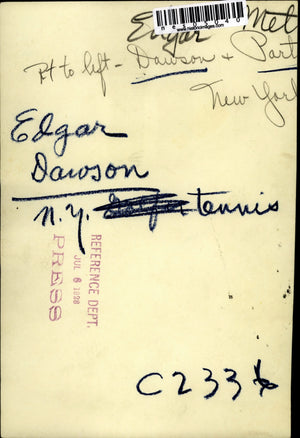 Edgar Met
Pt to lift - Dawson + Part
New York
Edgar
Dawson
N.Y. tennis
REFERENCE DEPT.
JUL 6 1928
PRESS
C233